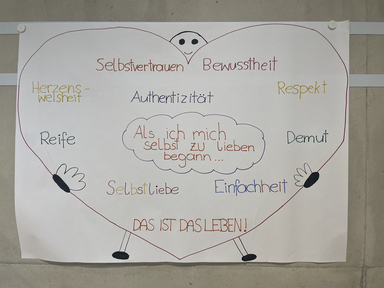 Selbstvertrauen Bewusstheit
Herzens-
weisheit
Authentizität
Respekt
Als ich mich
selbst zu lieben
begann...
Reife
Demut
Selbstliebe
Einfachheit
DAS IST DAS LEBEN!